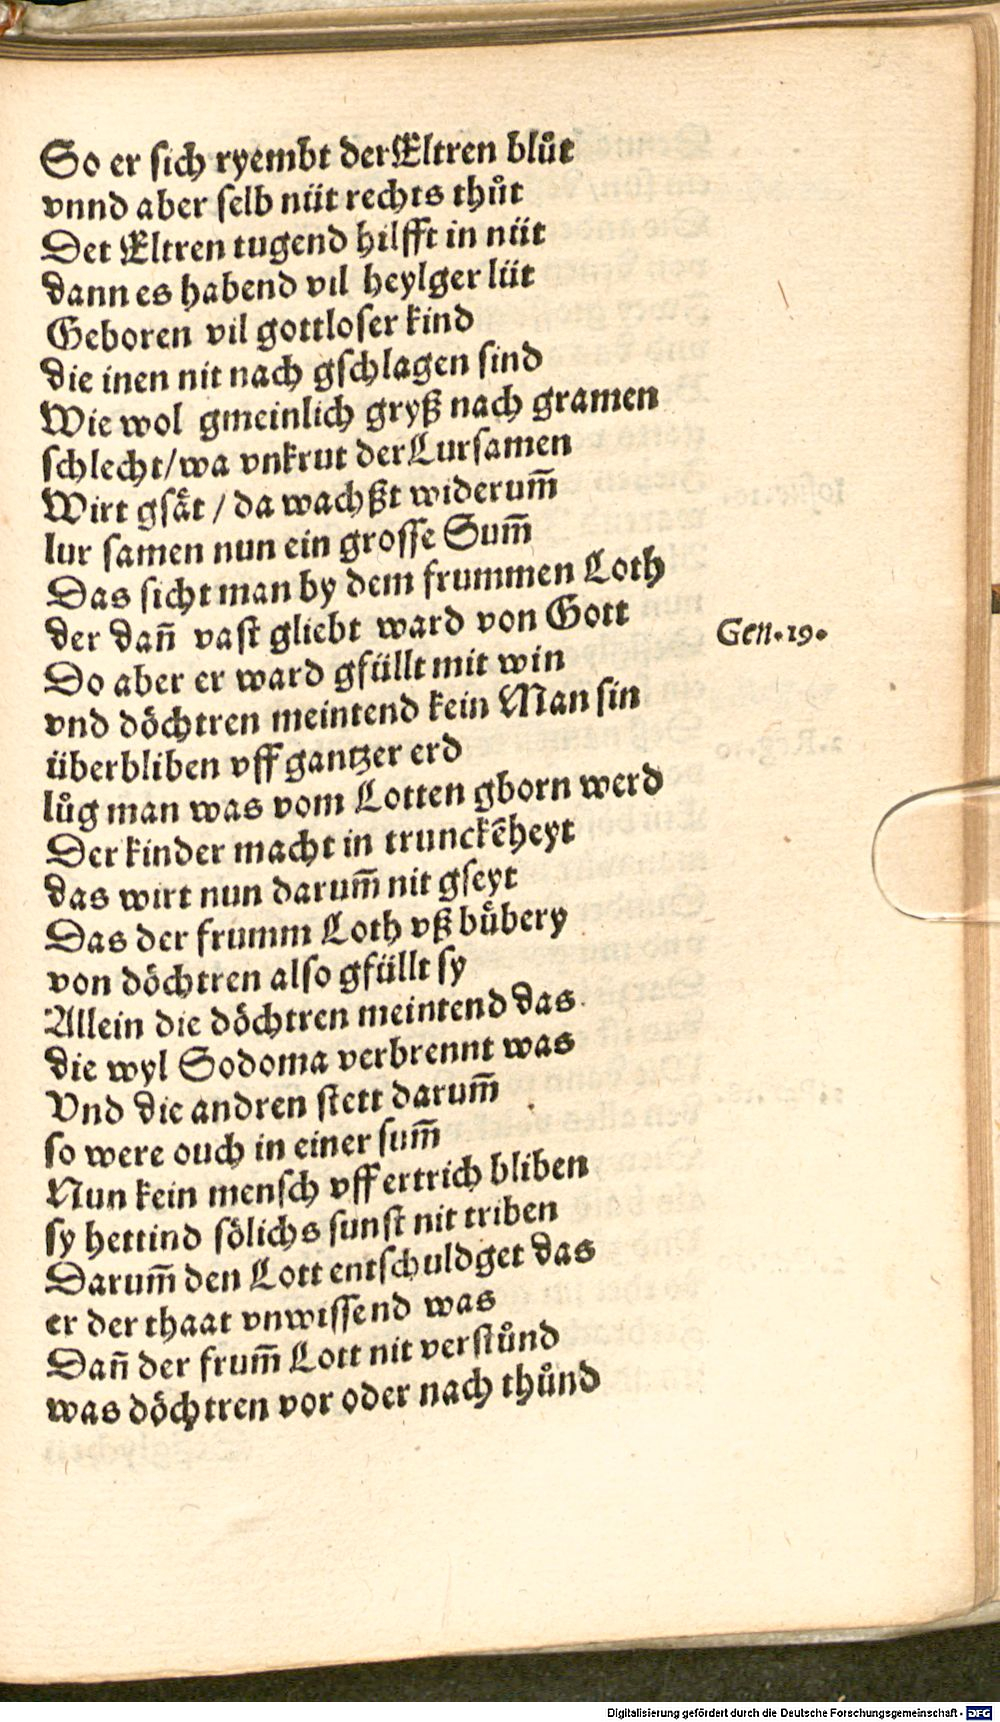 So er sich ryembt der Eltren blůt
vnnd aber selb nüt rechts thůt
Det Eltren tugend hilfft in nüt
dann es habend vil heylger lüt
Geboren vil gottloser kind
die inen nit nach gschlagen sind
Wie wol gmeinlich gryß nach gramen
schlecht/wa vnkrut der Lursamen
Wirt gsåt / da wachßt widerum̃
lur samen nun ein grosse Sum̃
Das sicht man by dem frummen Loth
der dañ vast gliebt ward von Gott
Gen.19.
Do aber er ward gfüllt mit win
vnd döchtren meintend kein Man sin
überbliben vff gantzer erd
lůg man was vom Lotten gborn werd
Der kinder macht in trunckẽheyt
das wirt nun darum̃ nit gseyt
Das der frumm Loth vß bůbery
von döchtren also gfüllt sy
Allein die döchtren meintend das
die wyl Sodoma verbrennt was
Vnd die andren stett darum̃
so were ouch in einer sum̃
Nun kein mensch vff ertrich bliben
sy hettind sölichs sunst nit triben
Darum̃ den Lott entschuldget das
er der thaat vnwissend was
Dañ der frum̃ Lott nit verstůnd
was döchtren vor oder nach thůnd
Digitalisierung gefördert durch die Deutsche Forschungsgemeinschaft - DFG